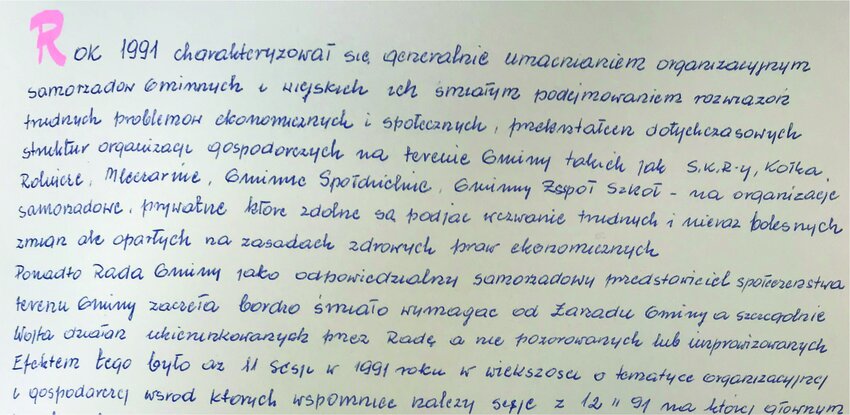 Rok 1991 charakteryzował się generalnie umacnianiem organizacyjnym
samorzadow Gminnych i wiejskich ich śmiałym podejmowaniem rozwiązoń
trudnych problemow ekonomicznych i społecznych, przekształceń dotychczasowych
struktur organizacji gospodarczych na terenie Gminy takich jak S.K.R-y, Kołka
Rolnicze, Mleczarnie, Gminne Spółdzielnie, Gminny Zespół Szkoł - na organizacje
samorzadowe, prywatne ktore zdolne są podjąc wezwanie trudnych i nieraz bolesnych
zmian ale opartych na zasadach zdrowych praw ekonomicznych
Ponadto Rada Gminy jako odpowiedzialny samorzadowy przedstawiciel społeczeństwa
terenu Gminy zaczeła bardzo śmiało wymagac od Zarzadu Gminy a szczegolnie
Wojta działań ukierunkowanych przez Radę a nie pozorowanych lub improwizowanych
Efektem tego było aż 11 Sesji w 1991 roku w wiekszosci o tematyce organizacyjnej
i gospodarczej wsrod ktorych wspomniec należy sesje z 12 II 91 na ktorej głownym